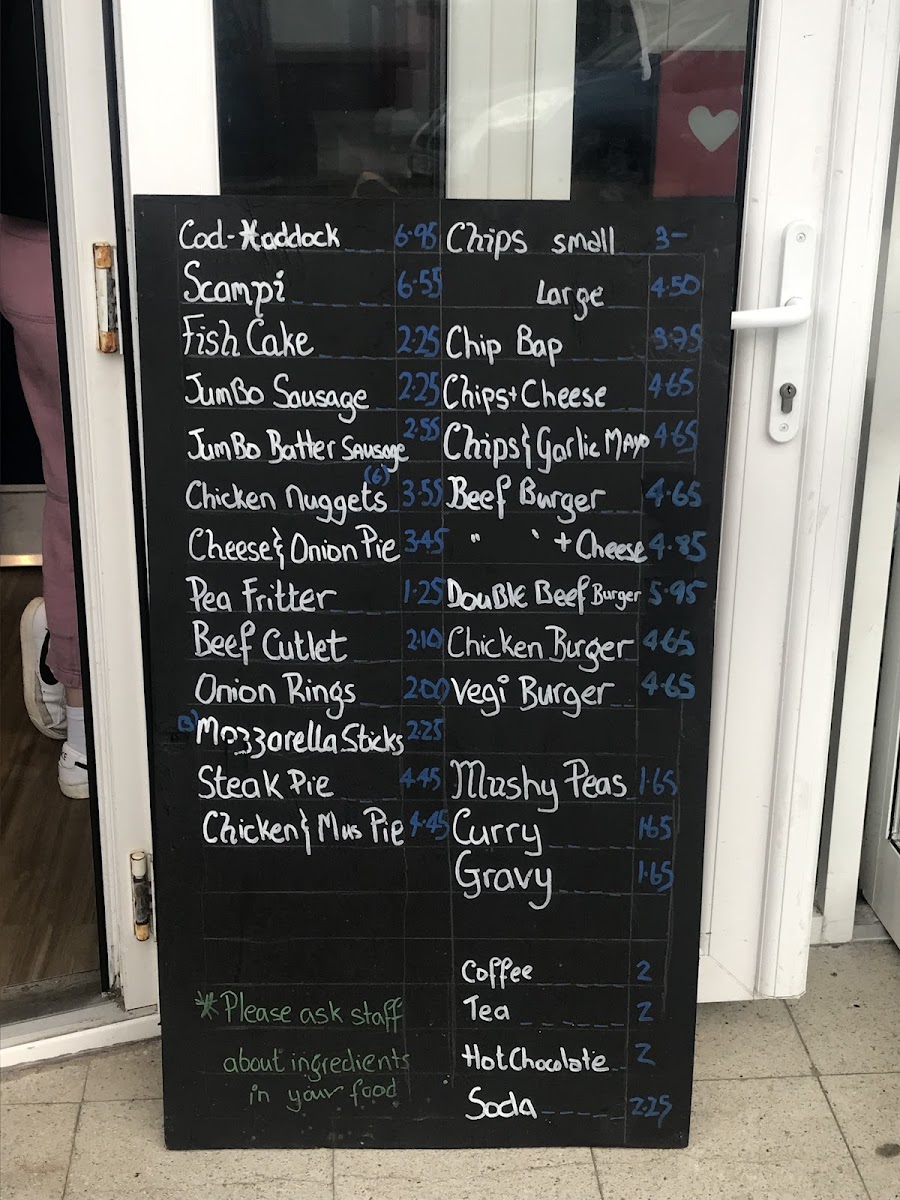 Cod-Haddock 6.95
Scampi 6.55
Fish Cake 2.25
JumBo Sausage 2.25
JumBo Batter Sausage 2.55
Chicken nuggets (6) 3.55
Cheese & Onion Pie 3.45
Pea Fritter 1.25
Beef Cutlet 2.10
Onion Rings 2.00
Mozzarella Sticks 2.25
Steak Pie 4.45
Chicken & Mus Pie 4.45
* Please ask staff
about ingredients
in your food
Chips small 3-
Large 4.50
Chip Bap 3.75
Chips + Cheese 4.65
Chips & Garlic Mayo 4.65
Beef Burger 4.65
" " + Cheese 4.85
DouBLE Beef Burger 5.95
Chicken Burger 4.65
Vegi Burger 4.65
Mushy Peas 1.65
Curry 1.65
Gravy 1.65
Coffee 2
Tea 2
Hot Chocolate 2
Soda 2.25